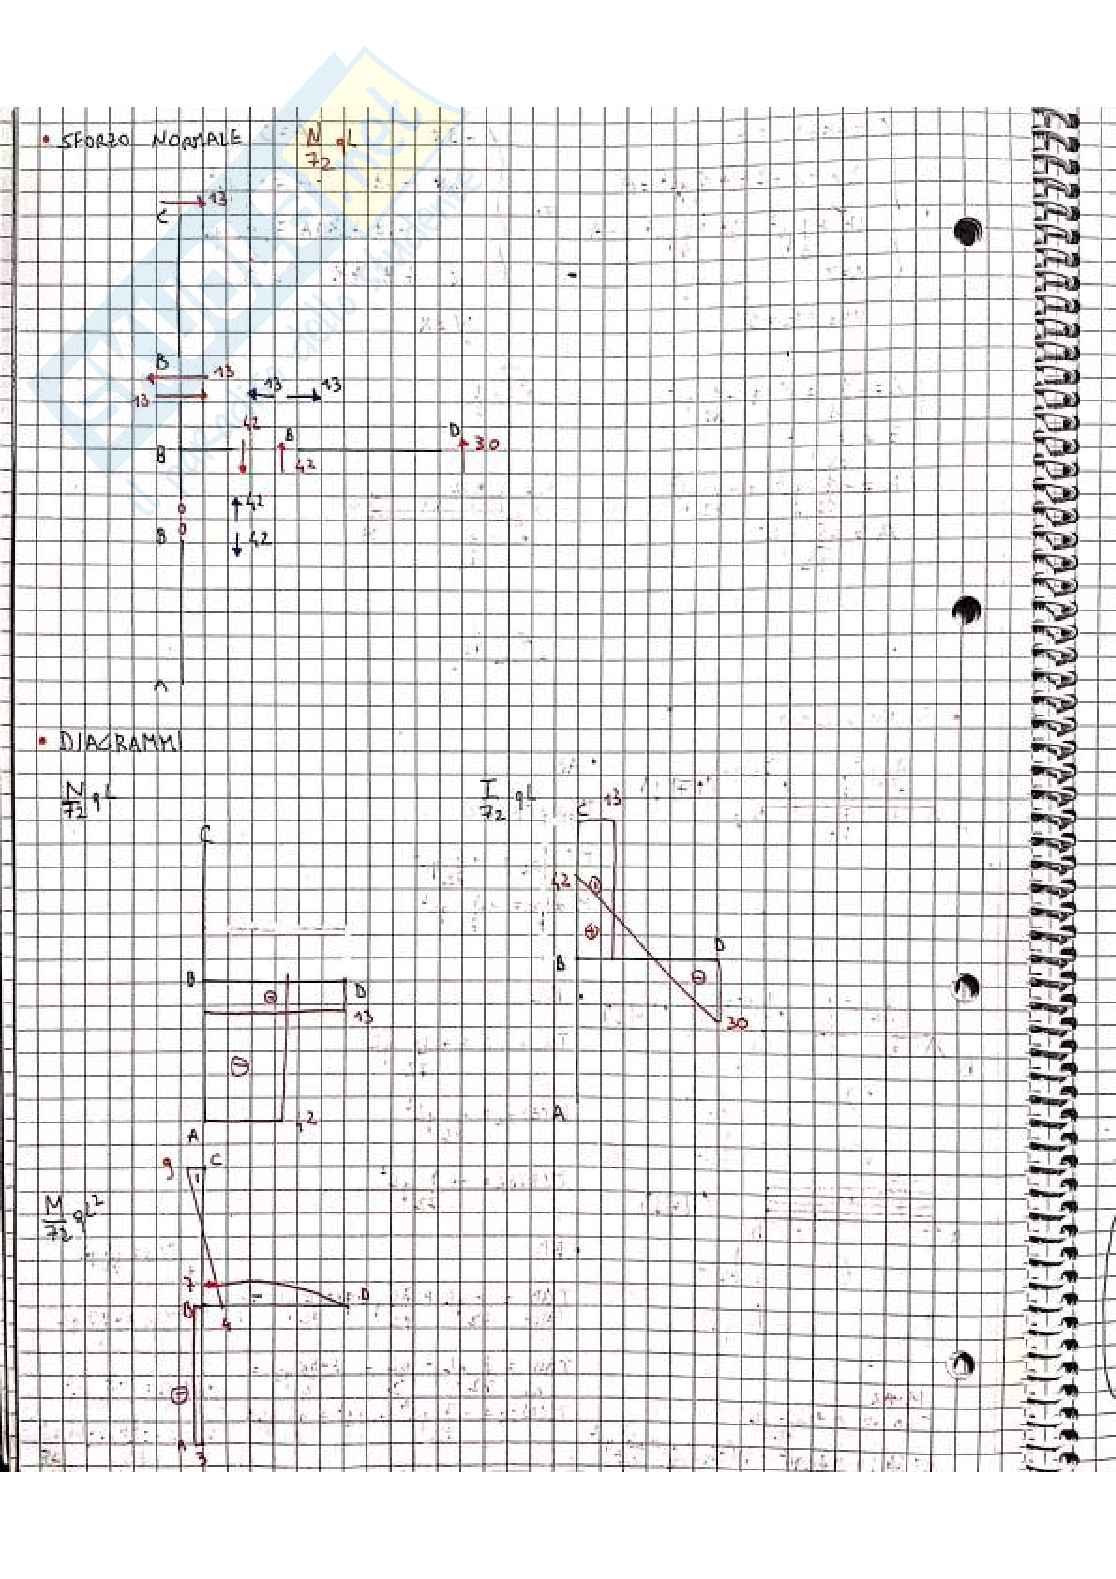 • SFORZO NORMALE N/72 qL
C 13
B 13
13 13 13
42 B D 30
B 42
0 42
B 0 42
A
• DIAGRAMMI
N/72 qL T/72 qL
C 13
C
42
B D
B D
13
30
42
A
A
9 C
M/72 qL²
7 D
B 4
A 3
Skuola.net